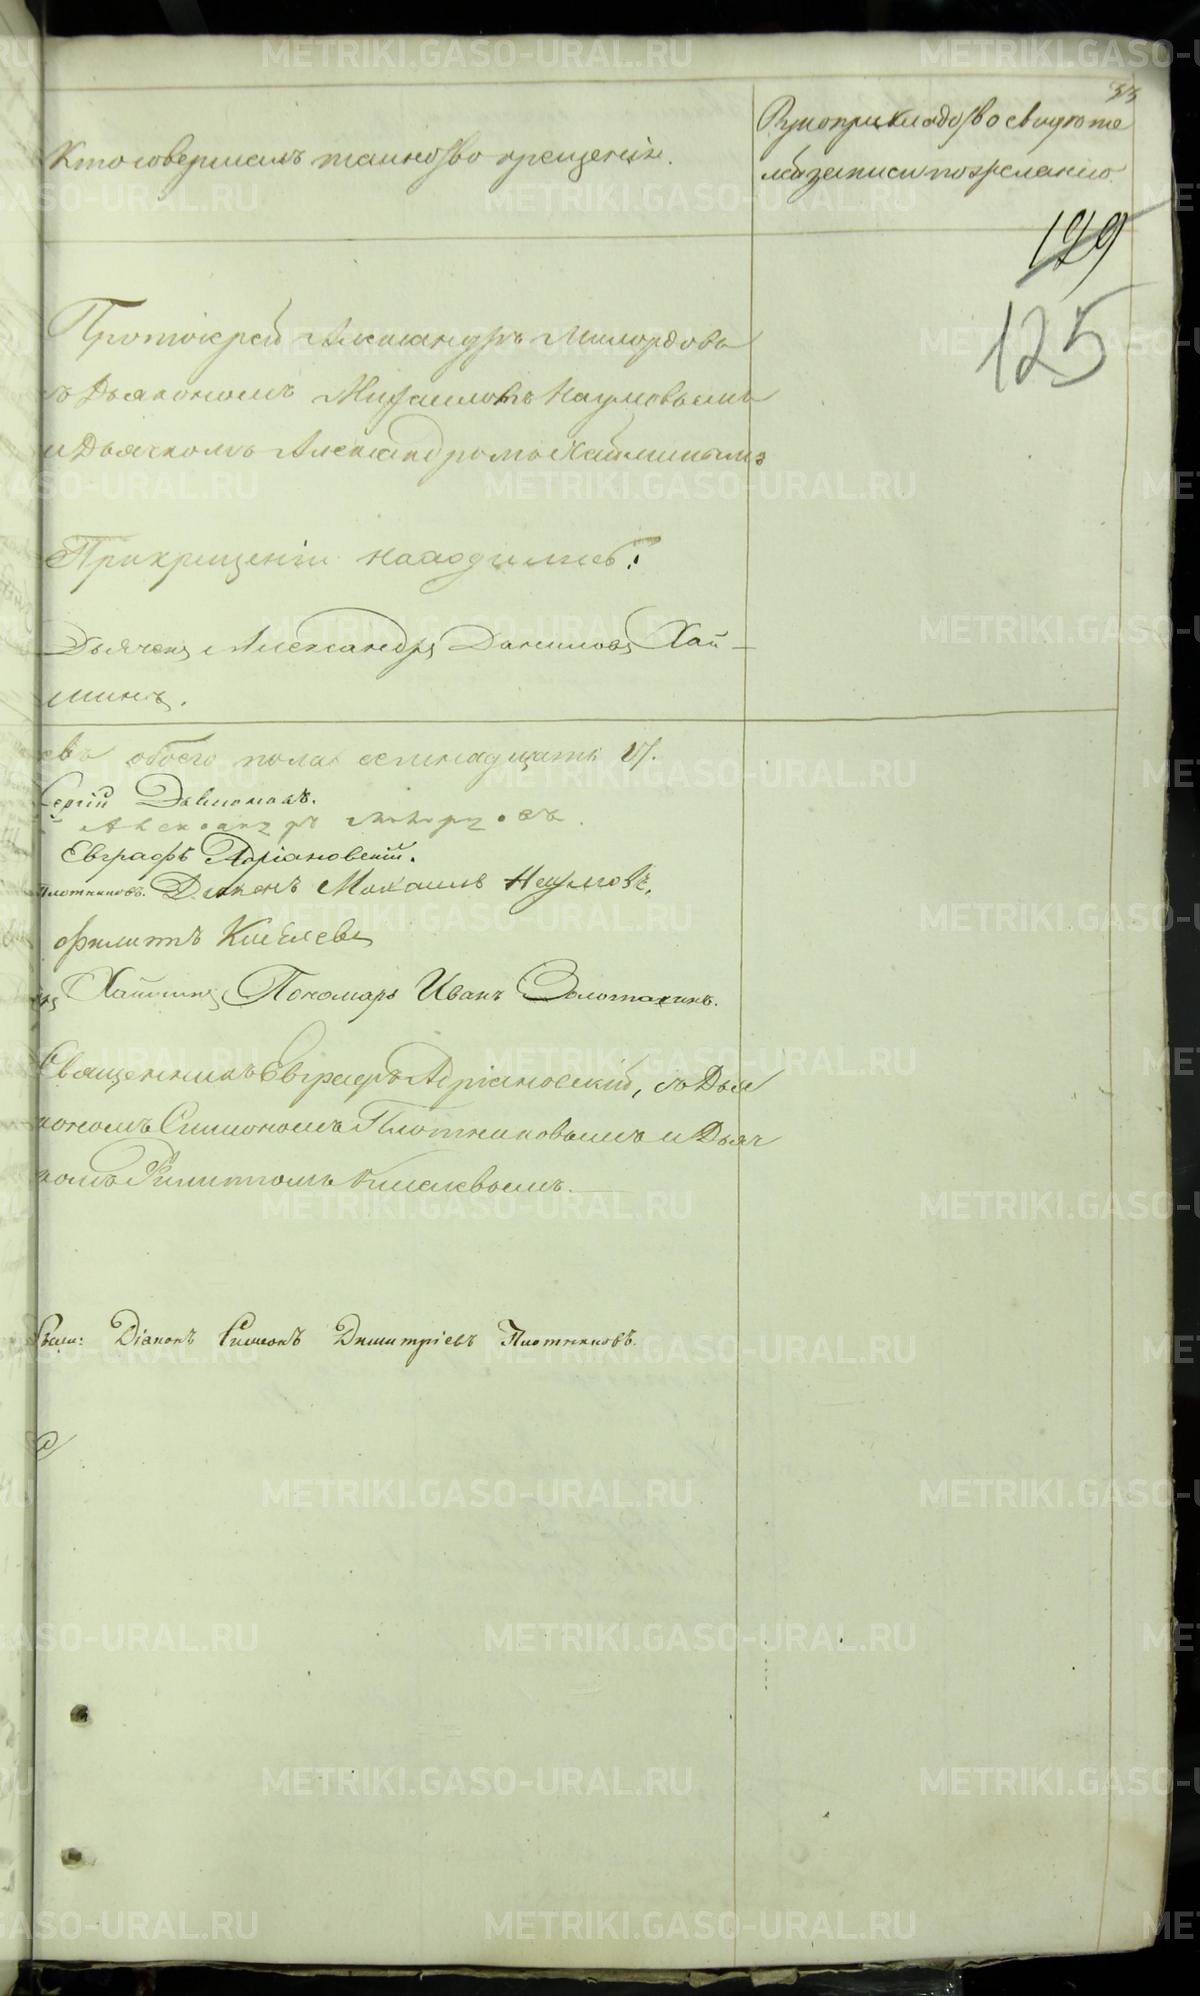 33
Кто совершалъ таинство крещенія.
Рукоприкладство свидѣте
лей записи по желанію.
129
125
Протоіерей Александръ Милордовъ
съ Дьякономъ Михаиломъ Наумовымъ
и Дьячкомъ Александромъ Хайминымъ
При крещеніи находились:
Дьячекъ Александръ Даниловъ Хай-
минъ.
обоего пола семнадцать 17.
Сергій
Александръ
Евграфъ Адріановскій.
Плотниковъ. Діаконъ Михаилъ Наумовъ.
Филиппъ Киселевъ
Хайминъ Пономарь Иванъ Золотавинъ.
Священникъ Евграфъ Адріановскій, съ Дья
кономъ Симономъ Плотниковымъ и Дьяч
комъ Филиппомъ Киселевымъ.
были: Діаконъ Симонъ Димитріевъ Плотниковъ.
METRIKI.GASO-URAL.RU